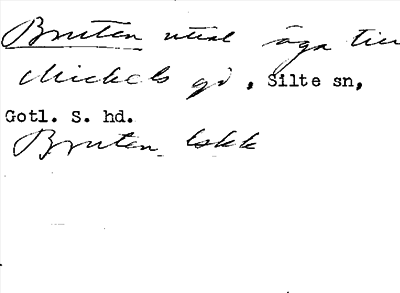 Bruten utial äga till
Michels gd, Silte sn,
Gotl. S. hd.
Bruten lskk